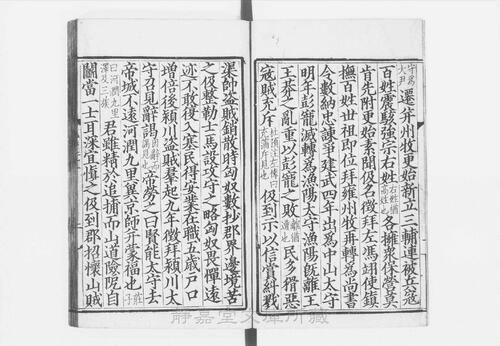 守爲大尹遷并州牧更始新立三輔連被兵寇
百姓震駭強宗右姓右姓猶高姓各擁衆保營莫
肯先附更始素聞伋名徵拜左馮翊使鎮
撫百姓世祖即位拜雍州牧再轉爲尚書
令數納忠諫爭建武四年出爲中山太守
明年彭寵滅轉爲漁陽太守漁陽旣離王
莽之亂重以彭寵之敗離猶遭也民多猾惡
寇賊充斥杜預注左傳曰充滿斥見也伋到示以信賞糾戮
渠帥盜賊銷散時匈奴數抄郡界邊境苦
之伋整勒士馬設攻守之略匈奴畏憚遠
迹不敢復入塞民得安業在職五歲戶口
增倍後潁川盜賊羣起九年徵拜潁川太
守召見辭謁帝勞之曰賢能太守去
帝城不遠河潤九里冀京師并蒙福也莊子
曰河潤九里澤及三族君雖精於追捕而山道險阸自
鬬當一士耳深宜愼之伋到郡招懷山賊
靜嘉堂文庫所藏